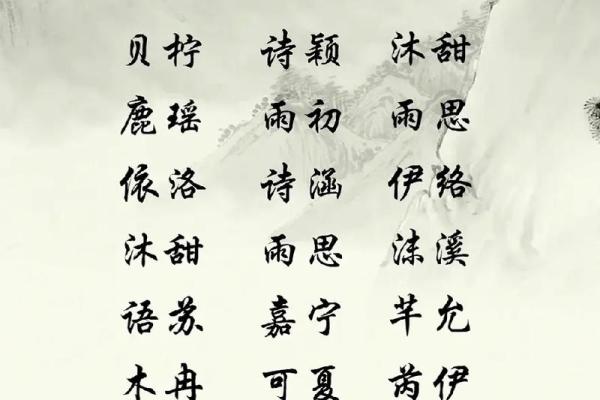 贝柠 诗颖 沐甜
鹿瑶 雨初 雨思
依洛 诗涵 伊络
沐甜 雨思 沫溪
语苏 嘉宁 芊允
木冉 可夏 芮伊